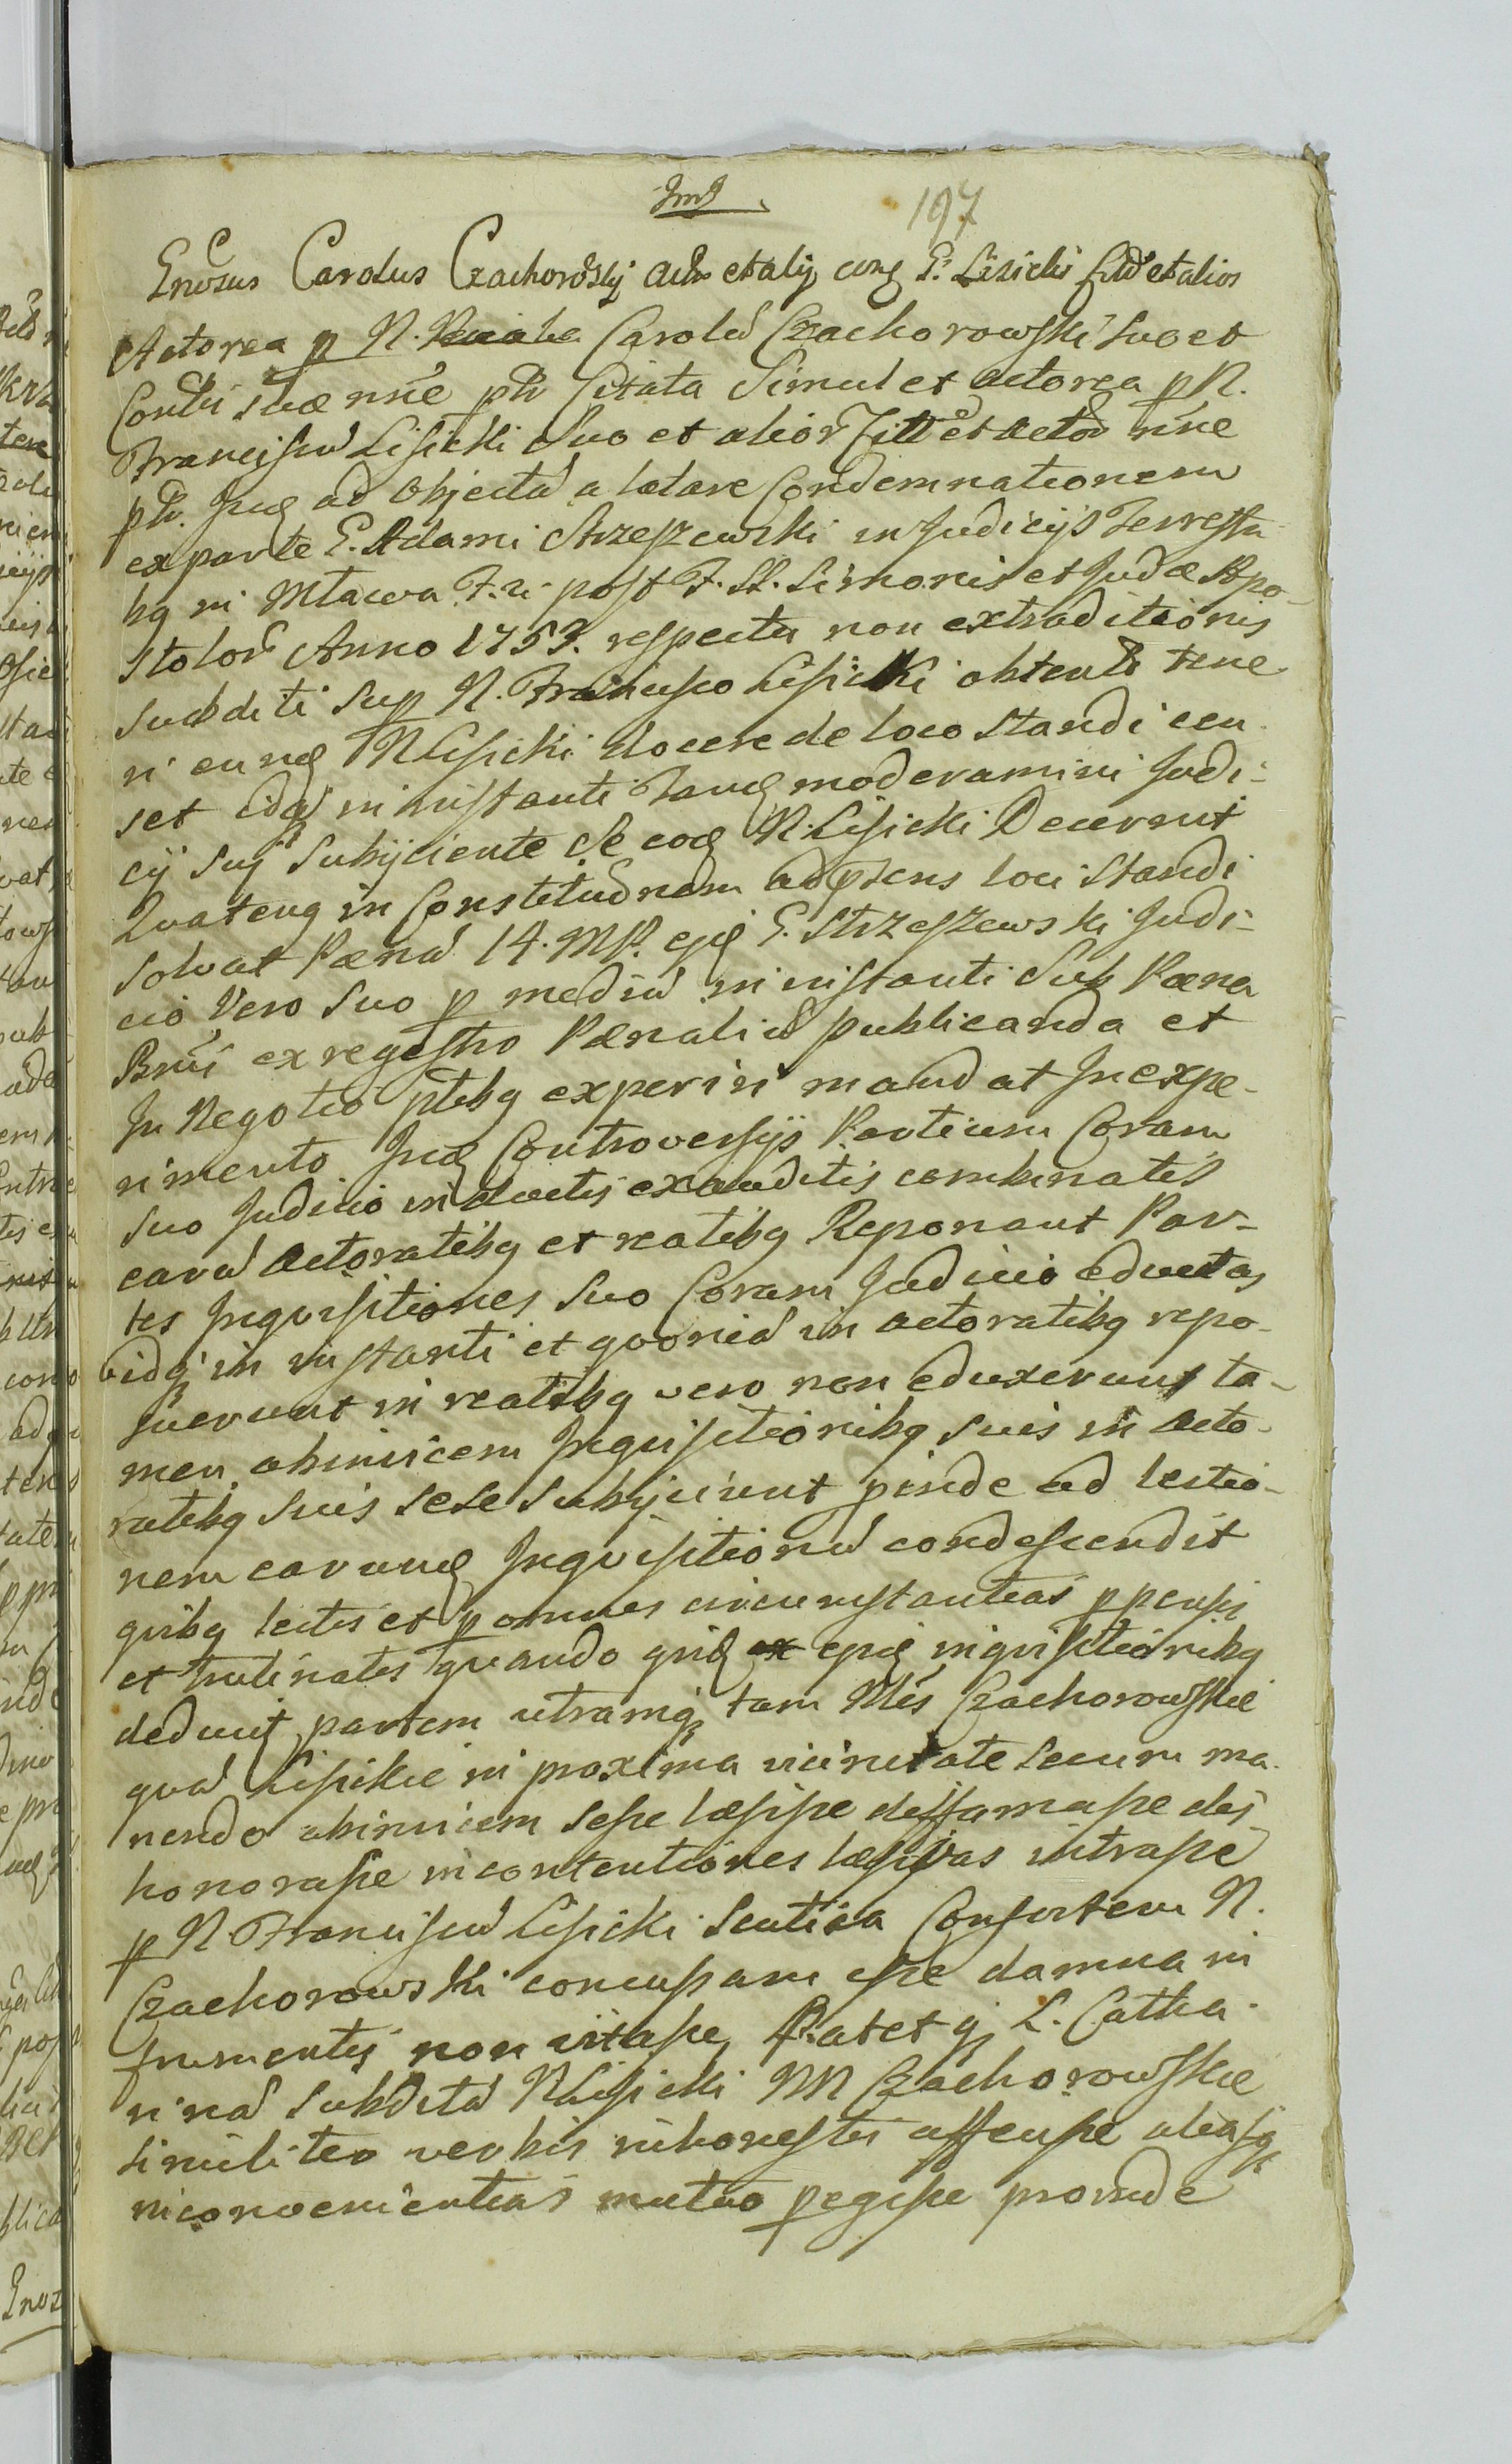 197
Gnosus Carolus Czachorowskij Actor et alij cong G. Lisicki Citt et alios
Actorea p N. Carolu Czachorowski suo et
Contli suæ nne ptr Citata Simul et actorea p N.
Franciscu Lisicki Suo et alior Citt et Actor nne
ptr. Incg ad Objecta a latare Condemnationem
ex parte G. Adami Strzeszewski in Judicijs Terrestri
bg in Mlawa F. 2 post F. SS. Simonis et Judæ Apo-
stolor Anno 1753. respectu non extraditionis
subditi sup N. Francisco Lisicki obtenta tene
ri eung N Lisicki docere de loco standi cen
set idqj in instanti Tancg moderamini Judi-
cij suj subijciente se eocg N. Lisicki Decernit
Quateng in Constitudnem adptens loci standi
solvat Pæna 14. MP. ejcg G. Strzeszewski Judi-
cio Vero suo p mediu in instanti Sub Pæna
Bnni ex regestro Pænaliu publicanda et
In Negotio ptibg experiri mandat In expe-
rimento Incg Controversijs Partium Coram
suo Judicio inductis exauditis combinatis
earu Actoratibg et reatibg Reponant Par-
tes Inquisitiones suo Coram Judicio eductas
idqj in instanti et quonia in actoratibg repo-
suerunt in reatibg vero non eduxerunt ta-
men abinvicem Inquisitionibg suis in acto-
ratibg suis sese subijciunt pinde ad lectio-
nem earung Inquisitionu condescendit
quibg lectis et p omnes circumstantias ppensis
et trutinatis quando quid ex ejcg inquisitionibg
deducit partem utramqj tam Mcs Czachorowskie
qua Lisickie in proxima vicinitate secum ma-
nendo abinvicem sese læsisse deffamasse des
honorasse in contentiones læsivas intrasse
p N Franciscu Lisicki Scutica Consortem N.
Czachorowski concussam esse damna in
frumentis non vitasse, Patet qj L. Catha-
rina subdita N Lisicki MM Czachorowskie
similiter verbis inhonestis affecisse aliasqj
inconvenientias mutuo pegisse proinde